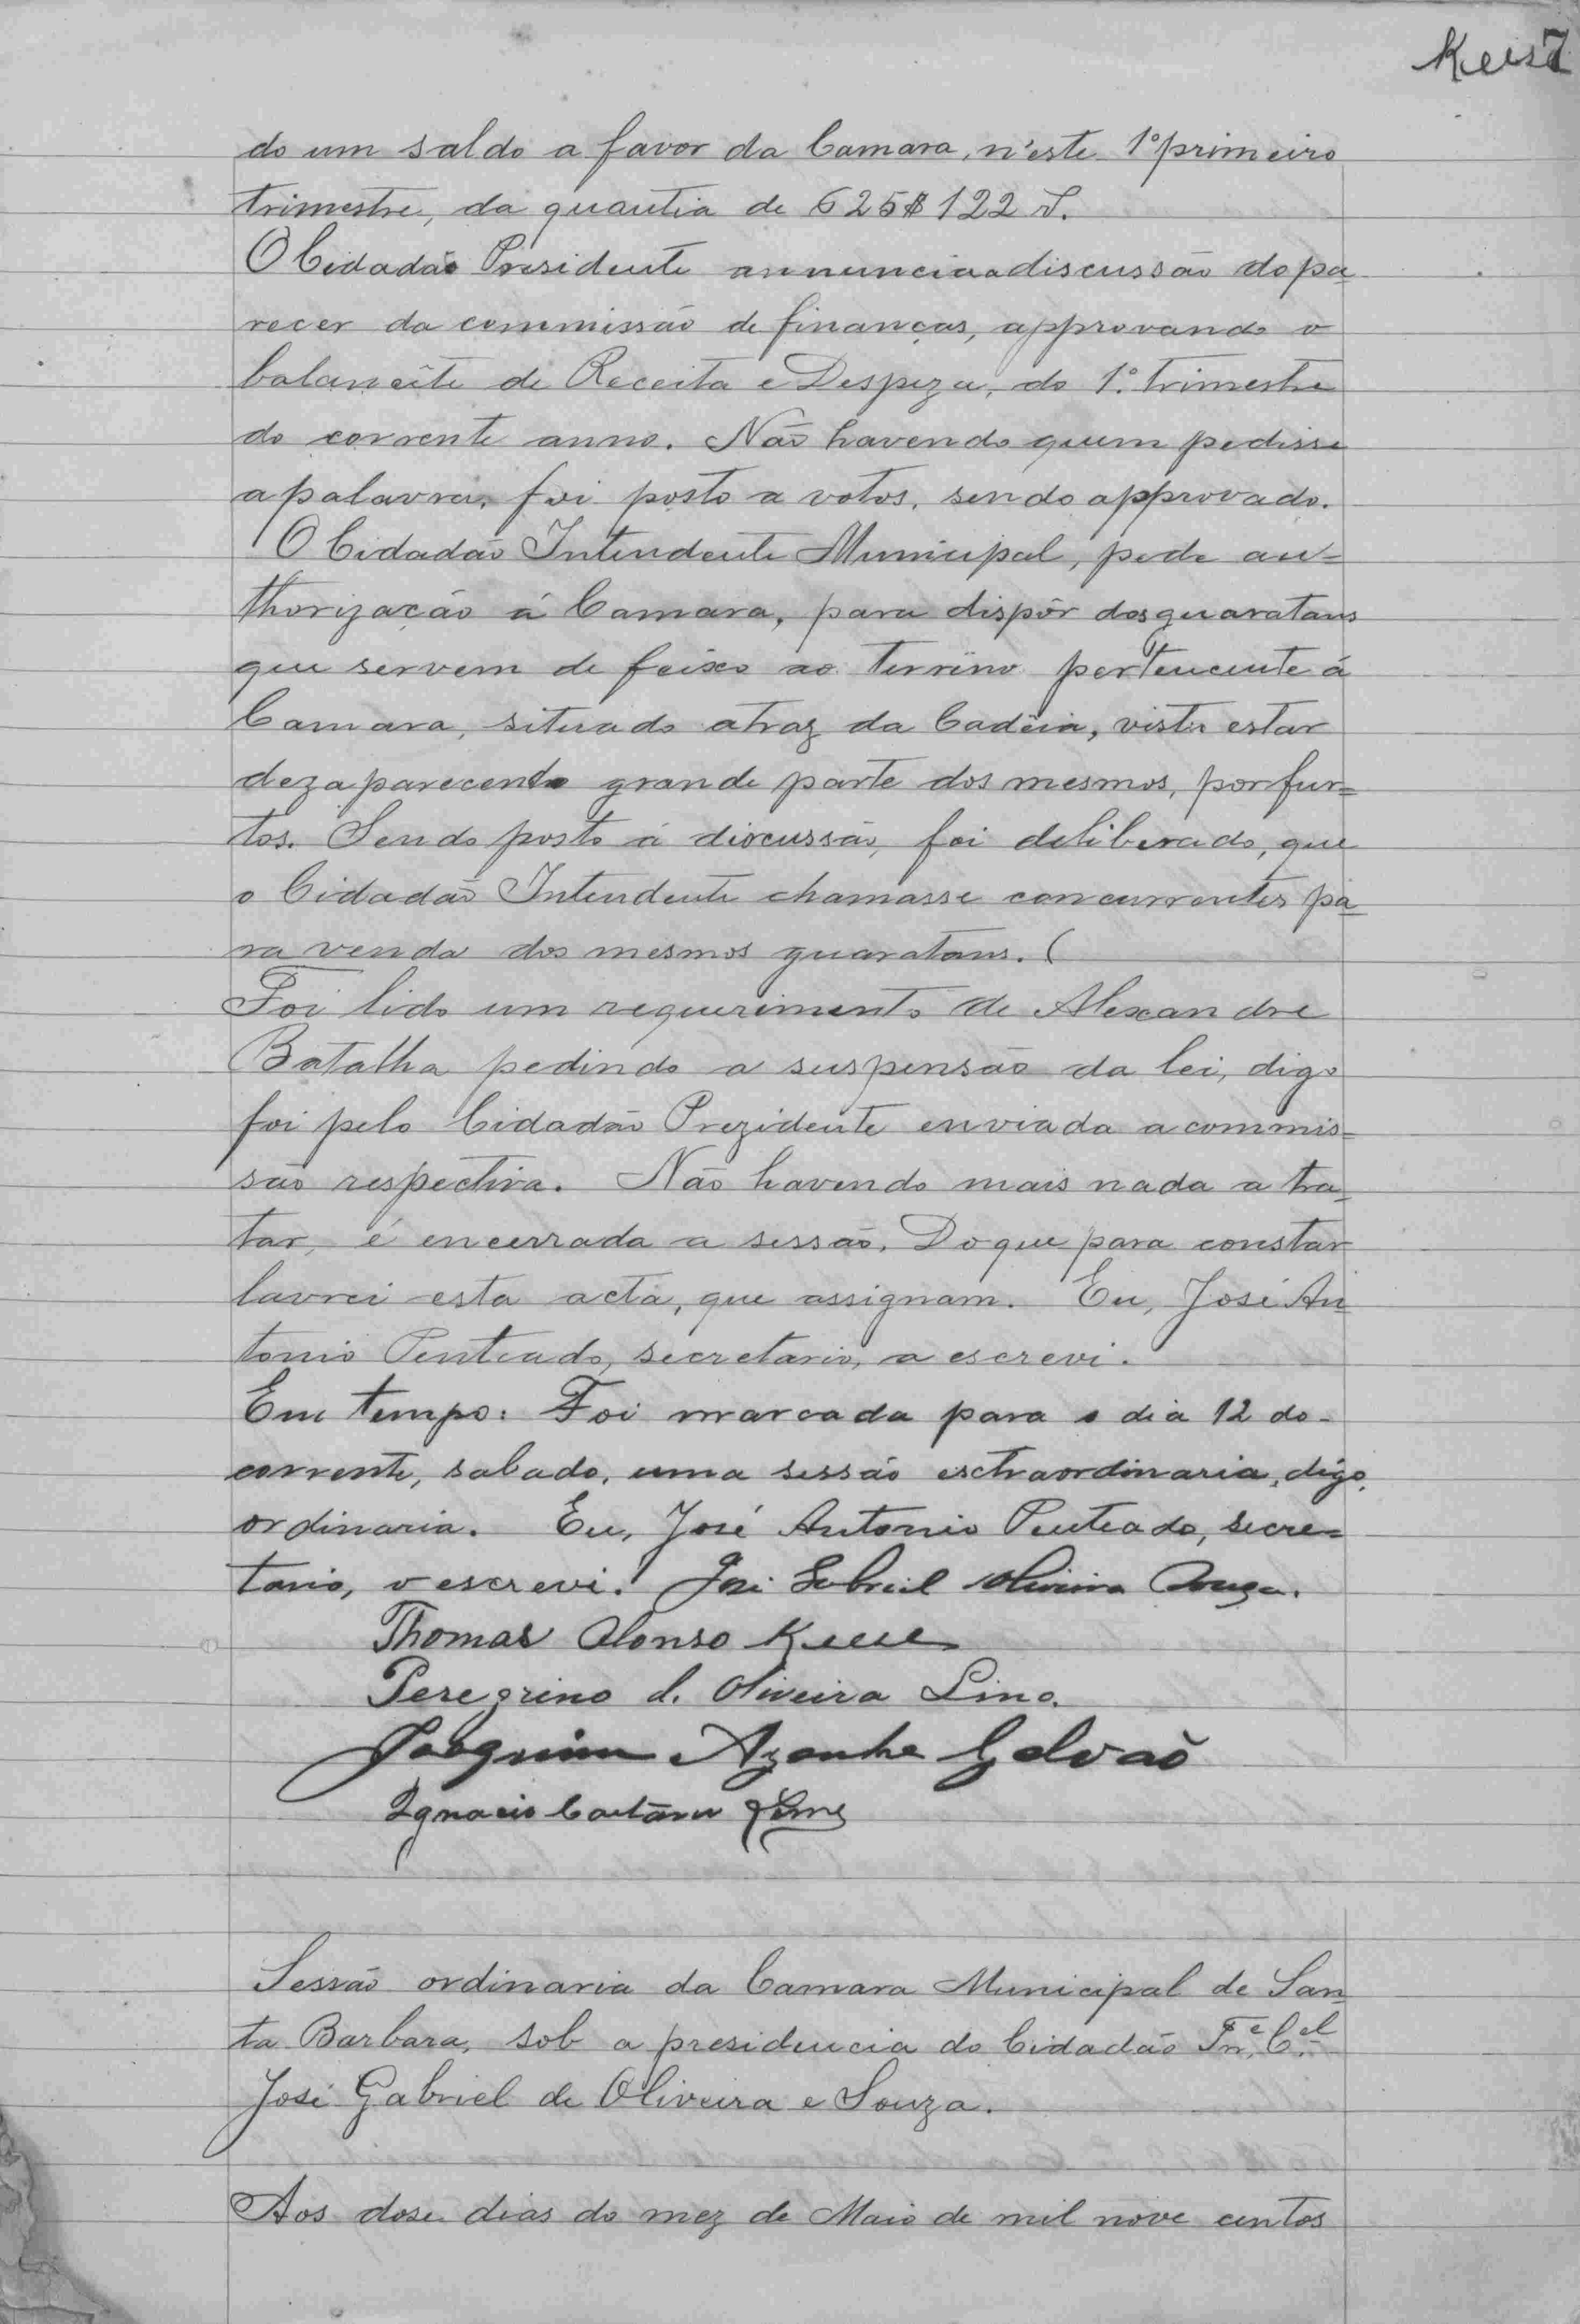 Keese 7
do um saldo a favor da Camara, n'este 1º primeiro
trimestre, da quantia de 625$122 rs.
O Cidadão Presidente annuncia a discussão do pa-
recer da commissão de finanças, approvando o
balancête de Receita e Despeza, do 1º trimestre
do corrente anno. Não havendo quem pedisse
a palavra, foi posto a votos, sendo approvado.
O Cidadão Intendente Municipal, pede au=
thorização á Camara, para dispôr dos guaratans
que servem de feixo ao terreno pertencente á
Camara, situado atraz da Cadêia, visto estar
dezaparecendo grande parte dos mesmos, por fur=
tos. Sendo posto á discussão, foi deliberado, que
o Cidadão Intendente chamasse concurrentes pa-
ra venda dos mesmos guaratans. (
Foi lido um requerimento de Alexandre
Batalha pedindo a suspensão da lei, digo
foi pelo Cidadão Prezidente enviada a commis=
são respectiva. Não havendo mais nada a tra-
tar, é encerrada a sessão. Do que para constar
lavrei esta acta, que assignam. Eu, José An-
tonio Penteado, secretario, a escrevi.
Em tempo: Foi marcada para o dia 12 do-
corrente, sabado, uma sessão esctraordinaria, digo,
ordinaria. Eu, José Antonio Penteado, secre=
tario, o escrevi. José Gabriel Oliveira Souza.
Thomas Alonso Keese
Peregrino d. Oliveira Lino.
Joaquim Azanha Galvaõ
Ignacio Caetano Leme
Sessão ordinaria da Camara Municipal de San-
ta Barbara, sob a presidencia do Cidadão Tn.e C.el
José Gabriel de Oliveira e Souza.
Aos dose dias do mez de Maio de mil nove centos